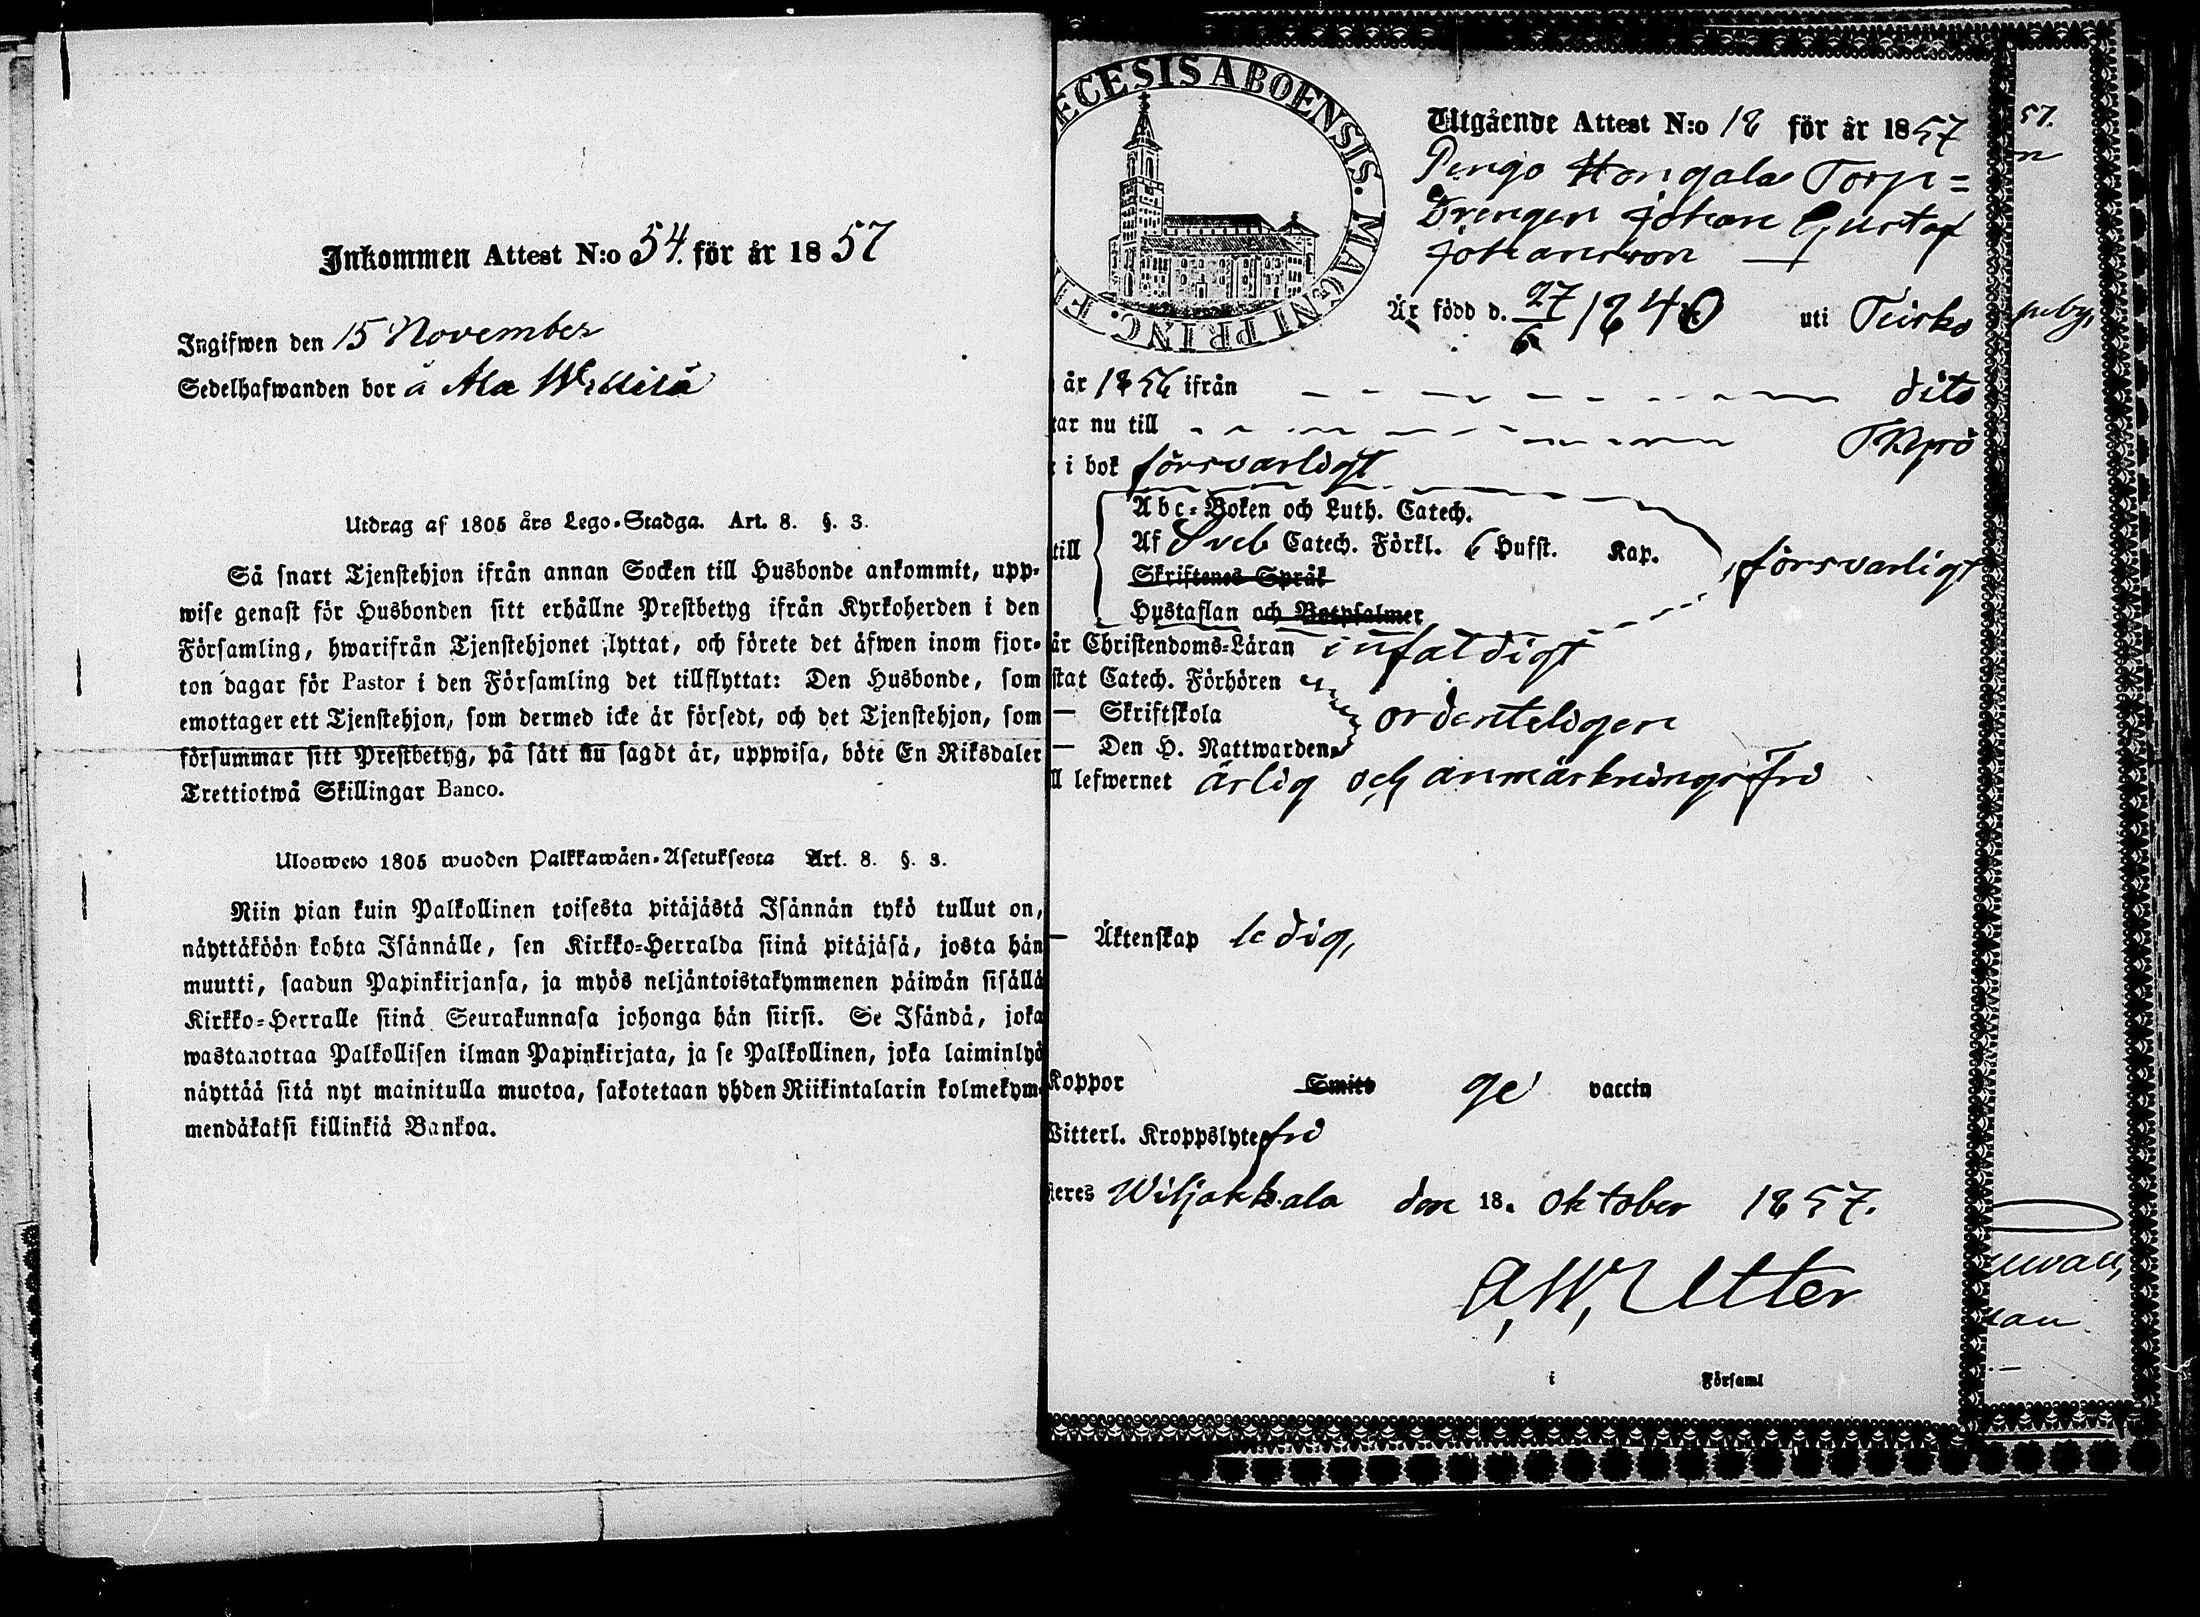 Inkommen Attest N:o 54. för år 1857
Ingifwen den 15 November
Sedelhafwanden bor å Ala
Utdrag af 1805 års Lego-Stadga. Art. 8. §. 3.
Så snart Tjenstehjon ifrån annan Socken till Husbonde ankommit, upp-
wise genast för Husbonden sitt erhållne Prestbetyg ifrån Kyrkoherden i den
Församling, hwarifrån Tjenstehjonet flyttat, och förete det äfwen inom fjor-
ton dagar för Pastor i den Församling det tillflyttat: Den Husbonde, som
emottager ett Tjenstehjon, som dermed icke är försedt, och det Tjenstehjon, som
försummar sitt Prestbetyg, på sätt nu sagdt är, uppwisa, böte En Riksdaler
Trettiotwå Skillingar Banco.
Ulosweto 1805 wuoden Palkkawäen-Asetuksesta Art. 8. §. 3.
Niin pian kuin Palkollinen toisesta pitäjästä Isännän tykö tullut on,
näyttäköön kohta Isännälle, sen Kirkko-Herralda siinä pitäjäsä, josta hän
muutti, saadun Papinkirjansa, ja myös neljäntoistakymmenen päiwän sisällä
Kirkko-Herralle siinä Seurakunnasa johonga hän siirsi. Se Isändä, joka
wastaanottaa Palkollisen ilman Papinkirjata, ja se Palkollinen, joka laiminlyö
näyttää sitä nyt mainitulla muotoa, sakotetaan yhden Riikintalarin kolmekym-
mendäkaksi killinkiä Bankoa.
ECESIS ABOENSIS. MAGNI PRINC. F
Utgående Attest N:o 18 för år 1857
Pengo Hongala Torp=
Drengen Johan Gustaf
Johansson
Är född d. 27/6 1840 uti Teisko
år 1856 ifrån dito
tar nu till TKyrö
i bok försvarligt
Abc-Boken och Luth. Catech.
till Af Sveb Catech. Förkl. 6 Hufst. Kap. försvarligt
Skriftenes Språk
Hustaflan och Botpsalmer
är Christendoms-Läran infaldigt
stat Catech. Förhören
— Skriftskola ordenteligen
— Den H. Nattwarden
ll lefwernet ärlig och anmärkningsfri
— Äktenskap ledig,
Koppor Smitt ge vaccin
Witterl. Kroppslyte fri
teres Wiljakkala den 18. Oktober 1857.
A. W. Utter
i Församl
57.
n